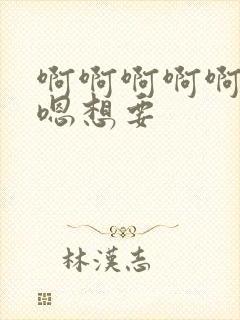 啊啊啊啊啊
嗯想要
林漢志